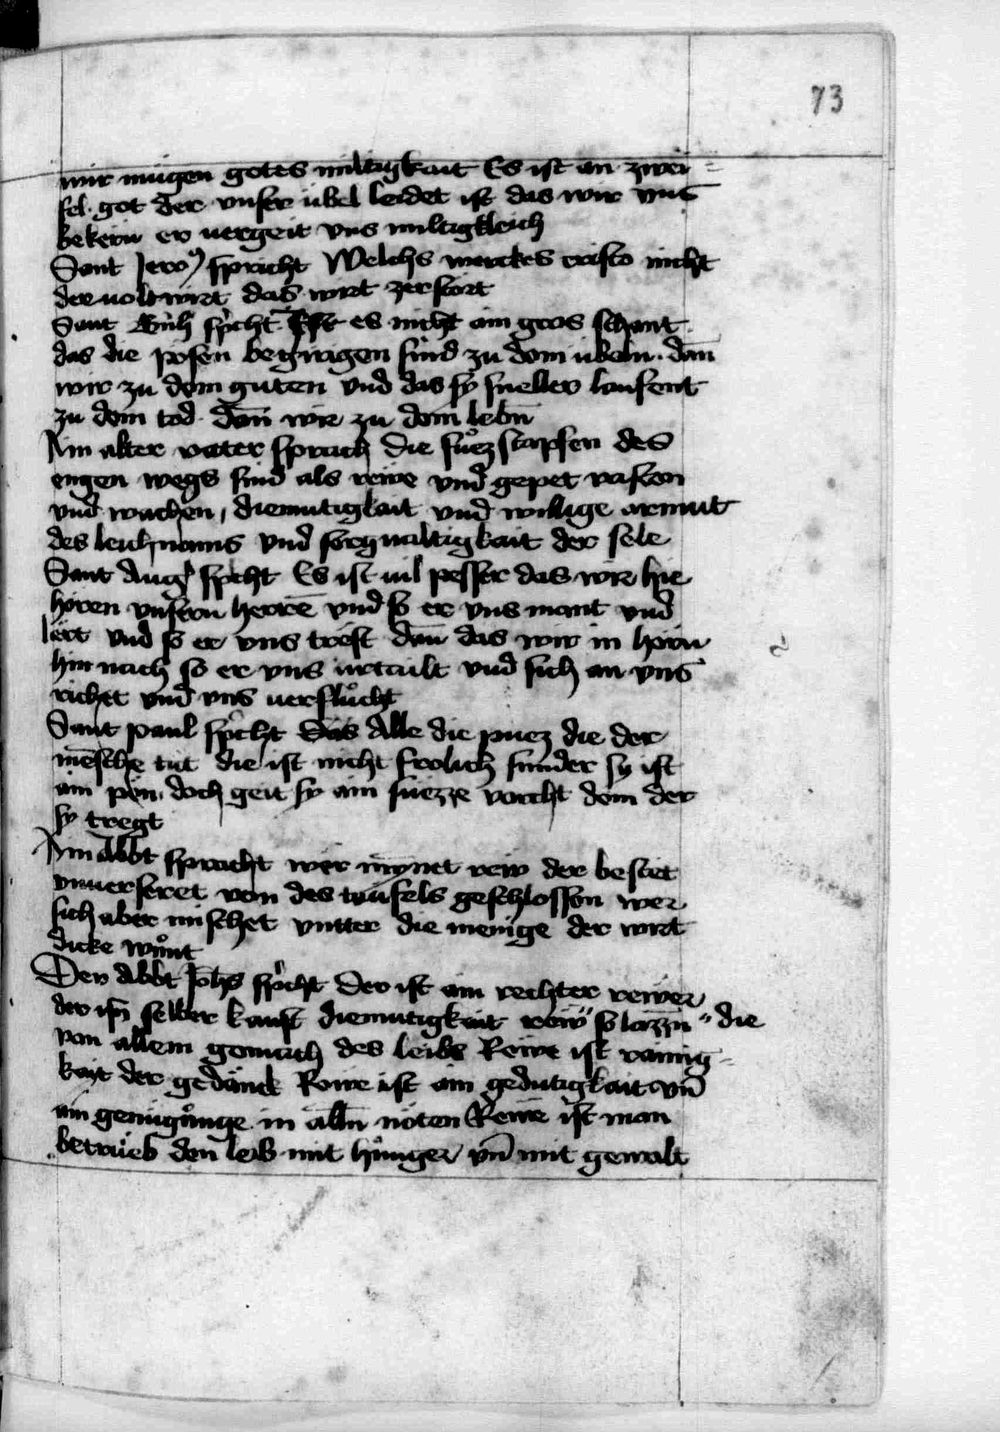 73
wir mügen gotes miltigkait Es ist an zwei-
fel. got der vnser übel leidet ist das wir vns
bekern er vergeit vns miltigkleich
Sant Jero9 spricht Welchs werckes cristo nicht
der uolt wirt das wirt zerstort
Sant spicht Ist es nicht ain gros schant
das die posen begirigen sind zu dem übeln. dañ
wir zu dem guten vnd das sy sneller laufent
zu dem tod. dañ wir zu dem lebñ
Ain alter vater sprach die fuͦezstapfen des
engen wegs sind als rewe vnd gepet vasten
vnd wachen, diemutigkait vnd willige armut
des leichnams vnd sorgualtigkait der sele
Sant Aug9 spicht Es ist uil pesser das wir hie
hören vnsern herrē vnd so er vns mant vnd
lert vnd so er vns trost dañ das wir in hörn
hin nach so er vns urtailt vnd sich an vns
richet vnd vns uerfluͦcht
Sant paul spicht Das Alle die puez die der
mēsche tut die ist nicht frolich sunder sy ist
ain pein. doch geit sy ain süezze vorcht dem der
sy tregt
Ain Abbt spricht wer mynet rew der bestet
vnuerseret von des teüfels geschlossen wer
sich aber mischet vntter die menige der wirt
dicke wuͦnt
Der Abbt Joh̄s spicht Der ist ain rechter rewer
der im selber kauft diemutigkait rew" so lazzñ" die
von allem gemach des leibs Rewe ist rainig-
kait der gedänck Rewe ist ain gedutigkait vñ
ain genügunge in alln̄ nöten Rewe ist man
betrüeb den leib mit hunger vñ mit gewalt